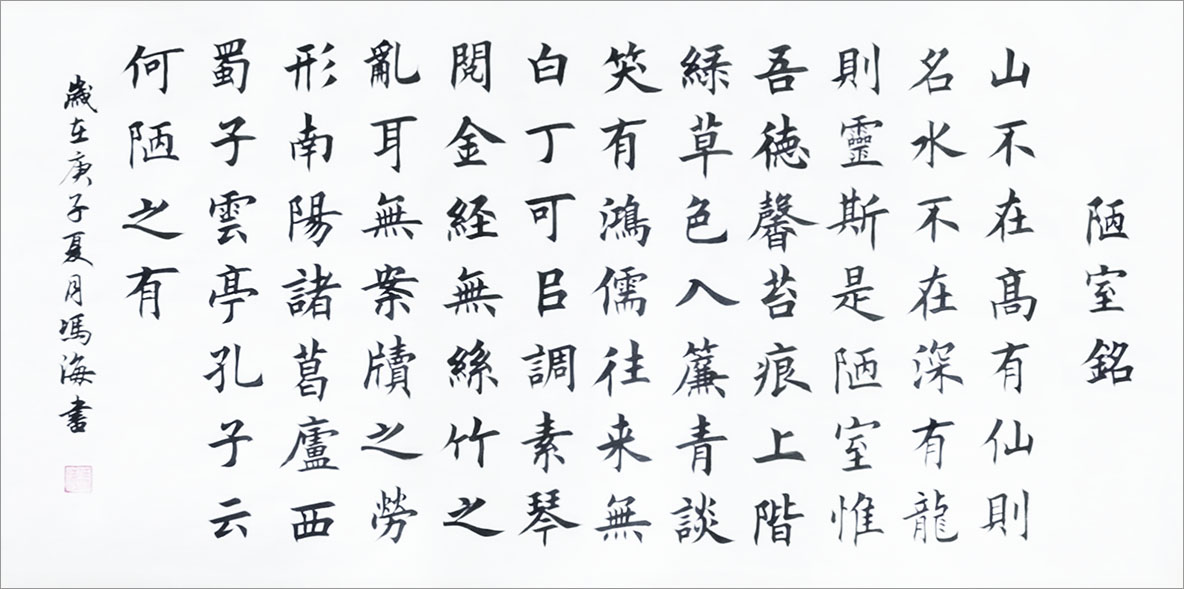 陋室銘
山不在髙有仙則
名水不在深有龍
則靈斯是陋室惟
吾德馨苔痕上階
緑草色入簾青談
笑有鴻儒往来無
白丁可㠯調素琴
閱金経無絲竹之
亂耳無案牘之勞
形南陽諸葛廬西
蜀子雲亭孔子云
何陋之有
歲在庚子夏月馮海書